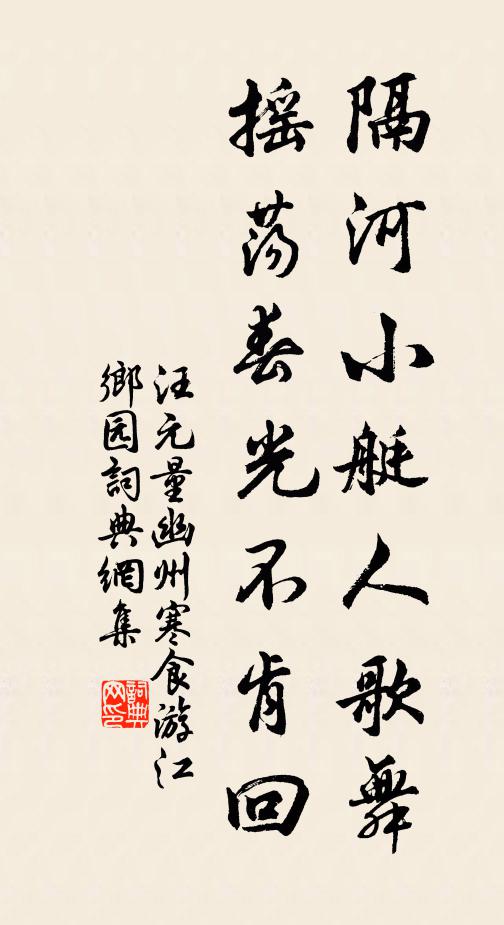 隔河小艇人歌舞
摇荡春光不肯回
汪元量幽州寒食游江
鄉园詞典網集
詞典网印